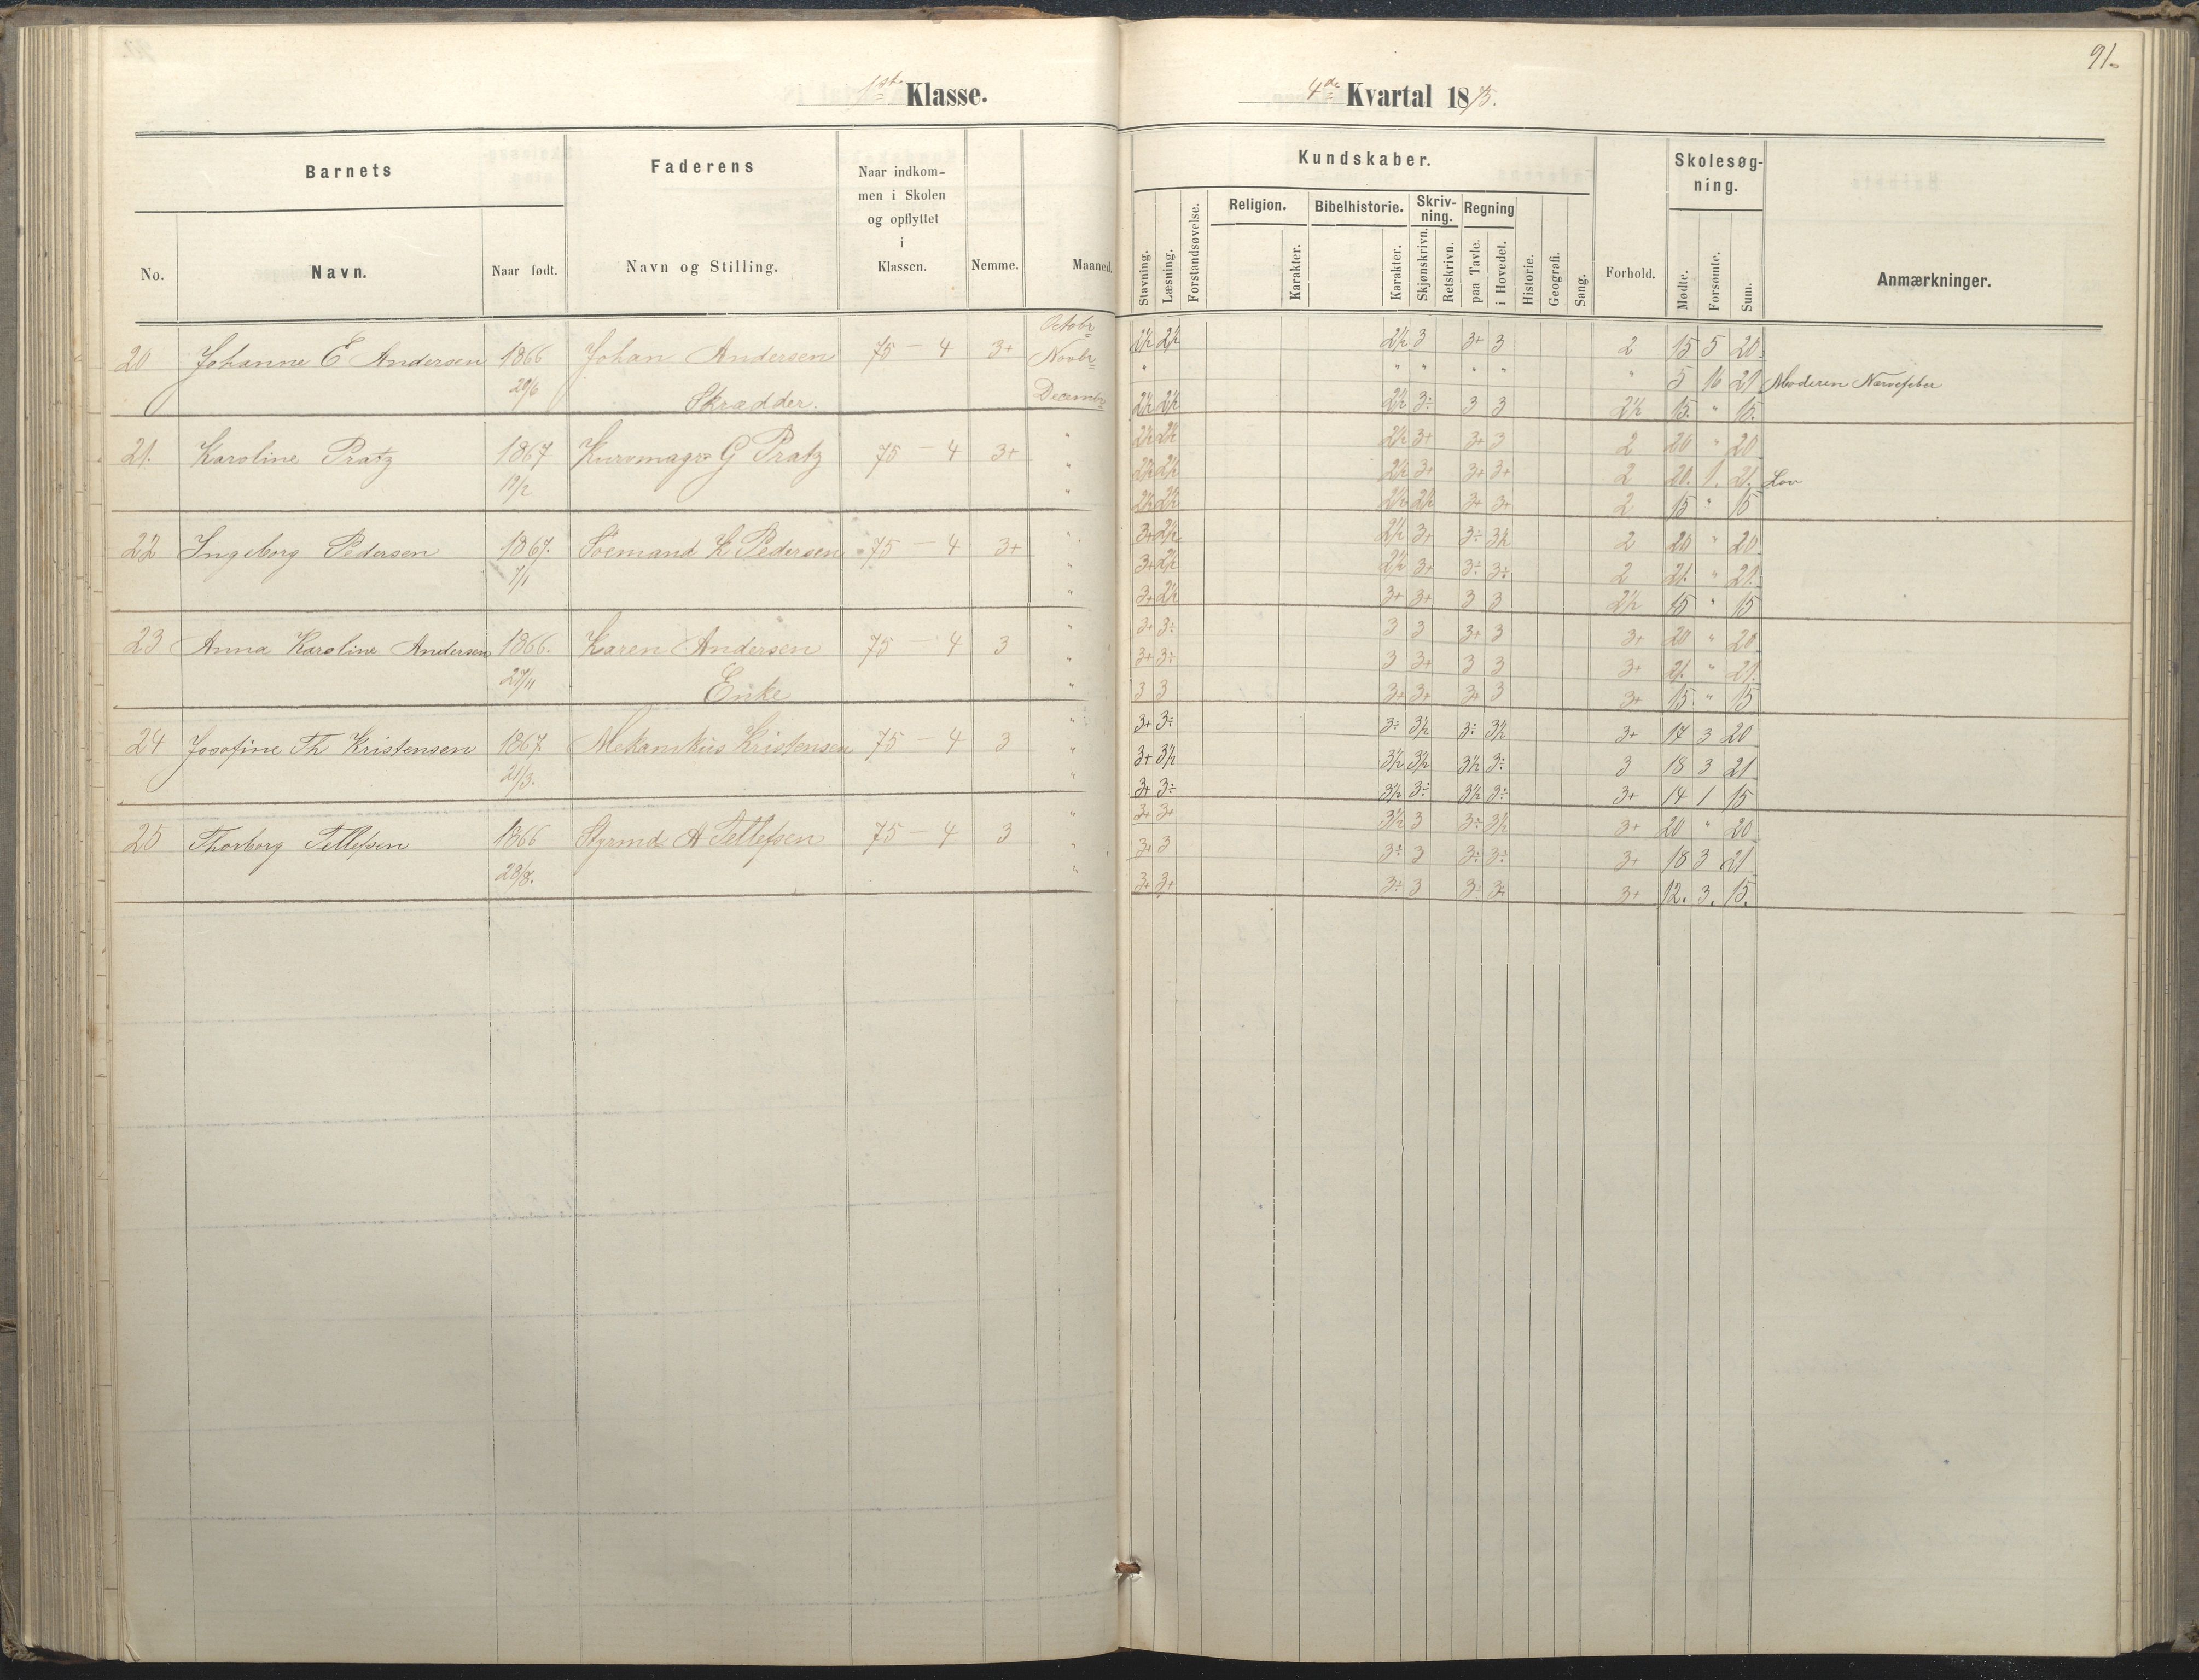 91.
1ste Klasse.
4de Kvartal 1875.
Barnets
Faderens
Naar indkom-
men i Skolen
og opflyttet
i
Klassen.
Nemme.
Maaned.
No.
Navn.
Naar født.
Navn og Stilling.
Kundskaber.
Stavning.
Læsning.
Forstandsøvelse.
Religion.
Karakter.
Bibelhistorie.
Karakter.
Skriv-
ning.
Skjønskrivn.
Retskrivn.
Regning
paa Tavle.
i Hovedet.
Historie.
Geografi.
Sang.
Forhold.
Skolesøg-
ning.
Mødte.
Forsømte.
Sum.
Anmærkninger.
20 Johanne E Andersen 1866 Johan Andersen 75 – 4 3+ Octobr 2½ 2½ 2½ 3 3+ 3 2 15 5 20.
29/6 Skrædder. Novbr " " " " " " 5 16 21 Moderen Nervefeber
Decembr 2½ 2½ 2½ 3÷ 3 3 2½ 15. " 15.
21. Karoline Pratz 1867 Kurvmagr G Pratz 75 – 4 3+ " 2½ 2½ 2½ 3+ 3+ 3 2 20 " 20
12/2 " 2½ 2½ 2½ 3+ 3+ 3+ 2 20. 1. 21. Lov
" 2½ 2½ 2½ 2½ 3+ 3+ 2 15 " 15
22 Ingeborg Pedersen 1867. Sömand L Pedersen 75 – 4 3+ " 3+ 2½ 2½ 3+ 3÷ 3½ 2 20 " 20
7/1 " 3+ 2½ 2½ 3+ 3÷ 3÷ 2 21. " 21.
" 3+ 2½ 3+ 3+ 3 3 2½ 15 " 15
23 Anna Karoline Andersen 1866. Karen Andersen 75 4 3 " 3+ 3÷ 3 3 3+ 3 3+ 20 " 20
Enke " 3+ 3÷ 3 3+ 3 3 3+ 21. " 21.
" 3 3 3+ 3+ 3+ 3 3+ 15 " 15
24 Josefine Th Kristensen 1867 Mekanikus Kristensen 75 – 4 3 " 3+ 3÷ 3÷ 3½ 3÷ 3½ 3+ 17 3 20
21/3. " 3+ 3½ 3½ 3½ 3½ 3÷ 3 18 3 21
" 3+ 3÷ 3½ 3÷ 3½ 3÷ 3+ 14 1 15
25 Thorborg Tellefsen 1866 Styrmd A Tellefsen 75 – 4 3 " 3+ 3+ 3½ 3 3÷ 3½ 3+ 20 " 20
28/8. " 3+ 3 3÷ 3 3÷ 3÷ 3+ 18 3 21
" 3+ 3+ 3÷ 3 3÷ 3÷ 3+ 12. 3. 15.